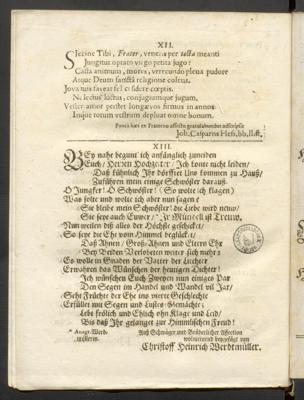 XII.
Siccine Tibi, Frater, veneris per tecta meanti
Jungitur optato virgo petita jugo?
Casta animum, mores, verecundo plena pudore
Atque Deum sanctâ religione colens.
Jova tuis faveat fidere cœptis.
Ne lectus luctus, conjugiumque jugum,
Vester amor perstet longævos firmus in annos
Inque totum vestrum depluat omne bonum.
Paucis hæc ex Fraterno affectu gratulabundus adscripsit
Joh. Casparus Hess,
XIII.
Ey nahe begunt ich anfänglich zuneiden
Euch / Herrn Hochzeiter / Ich konte nicht leiden /
Daß kühnlich Ihr dörfftet Uns kommen zu Hauß /
Zuführen mein einige Schwöster darauß.
O Jungfer! O Schwöster! (So wolte ich klagen)
Was solte und wolte ich aber nun sagen?
Sie bleibt mein Schwöster! die Liebe wird neuw /
Sie seye auch Euwer /
Nun weilen diß alles der Höchste geschicket /
So seye die Ehe von Himmel beglücket /
Daß Ahnen / Groß-Ahnen und Eltern Ehr
Bey Beiden Verlobeten weiter sich mehr:
Es wolle in Gnaden der Vatter der Liechter
Erwahren das Wünschen der heutigen Dichter!
Ich wünschen Euch Zweyen nun einiges Par
Den Segen im Handel und Wandel
Seht Früchte der Ehe ins vierte Geschlechte
Erfüllet mit Segen und
Lebt frölich und Ehlich ohn Klage und Leid /
Biß daß Ihr gelanget zur Himmlischen Freud!
* Anagr. Werd-
müllerin.
Auß Schwäger- und Brüderlicher Affection
wolmeinend beygefügt von
Christoff Heinrich Werdtmüller.